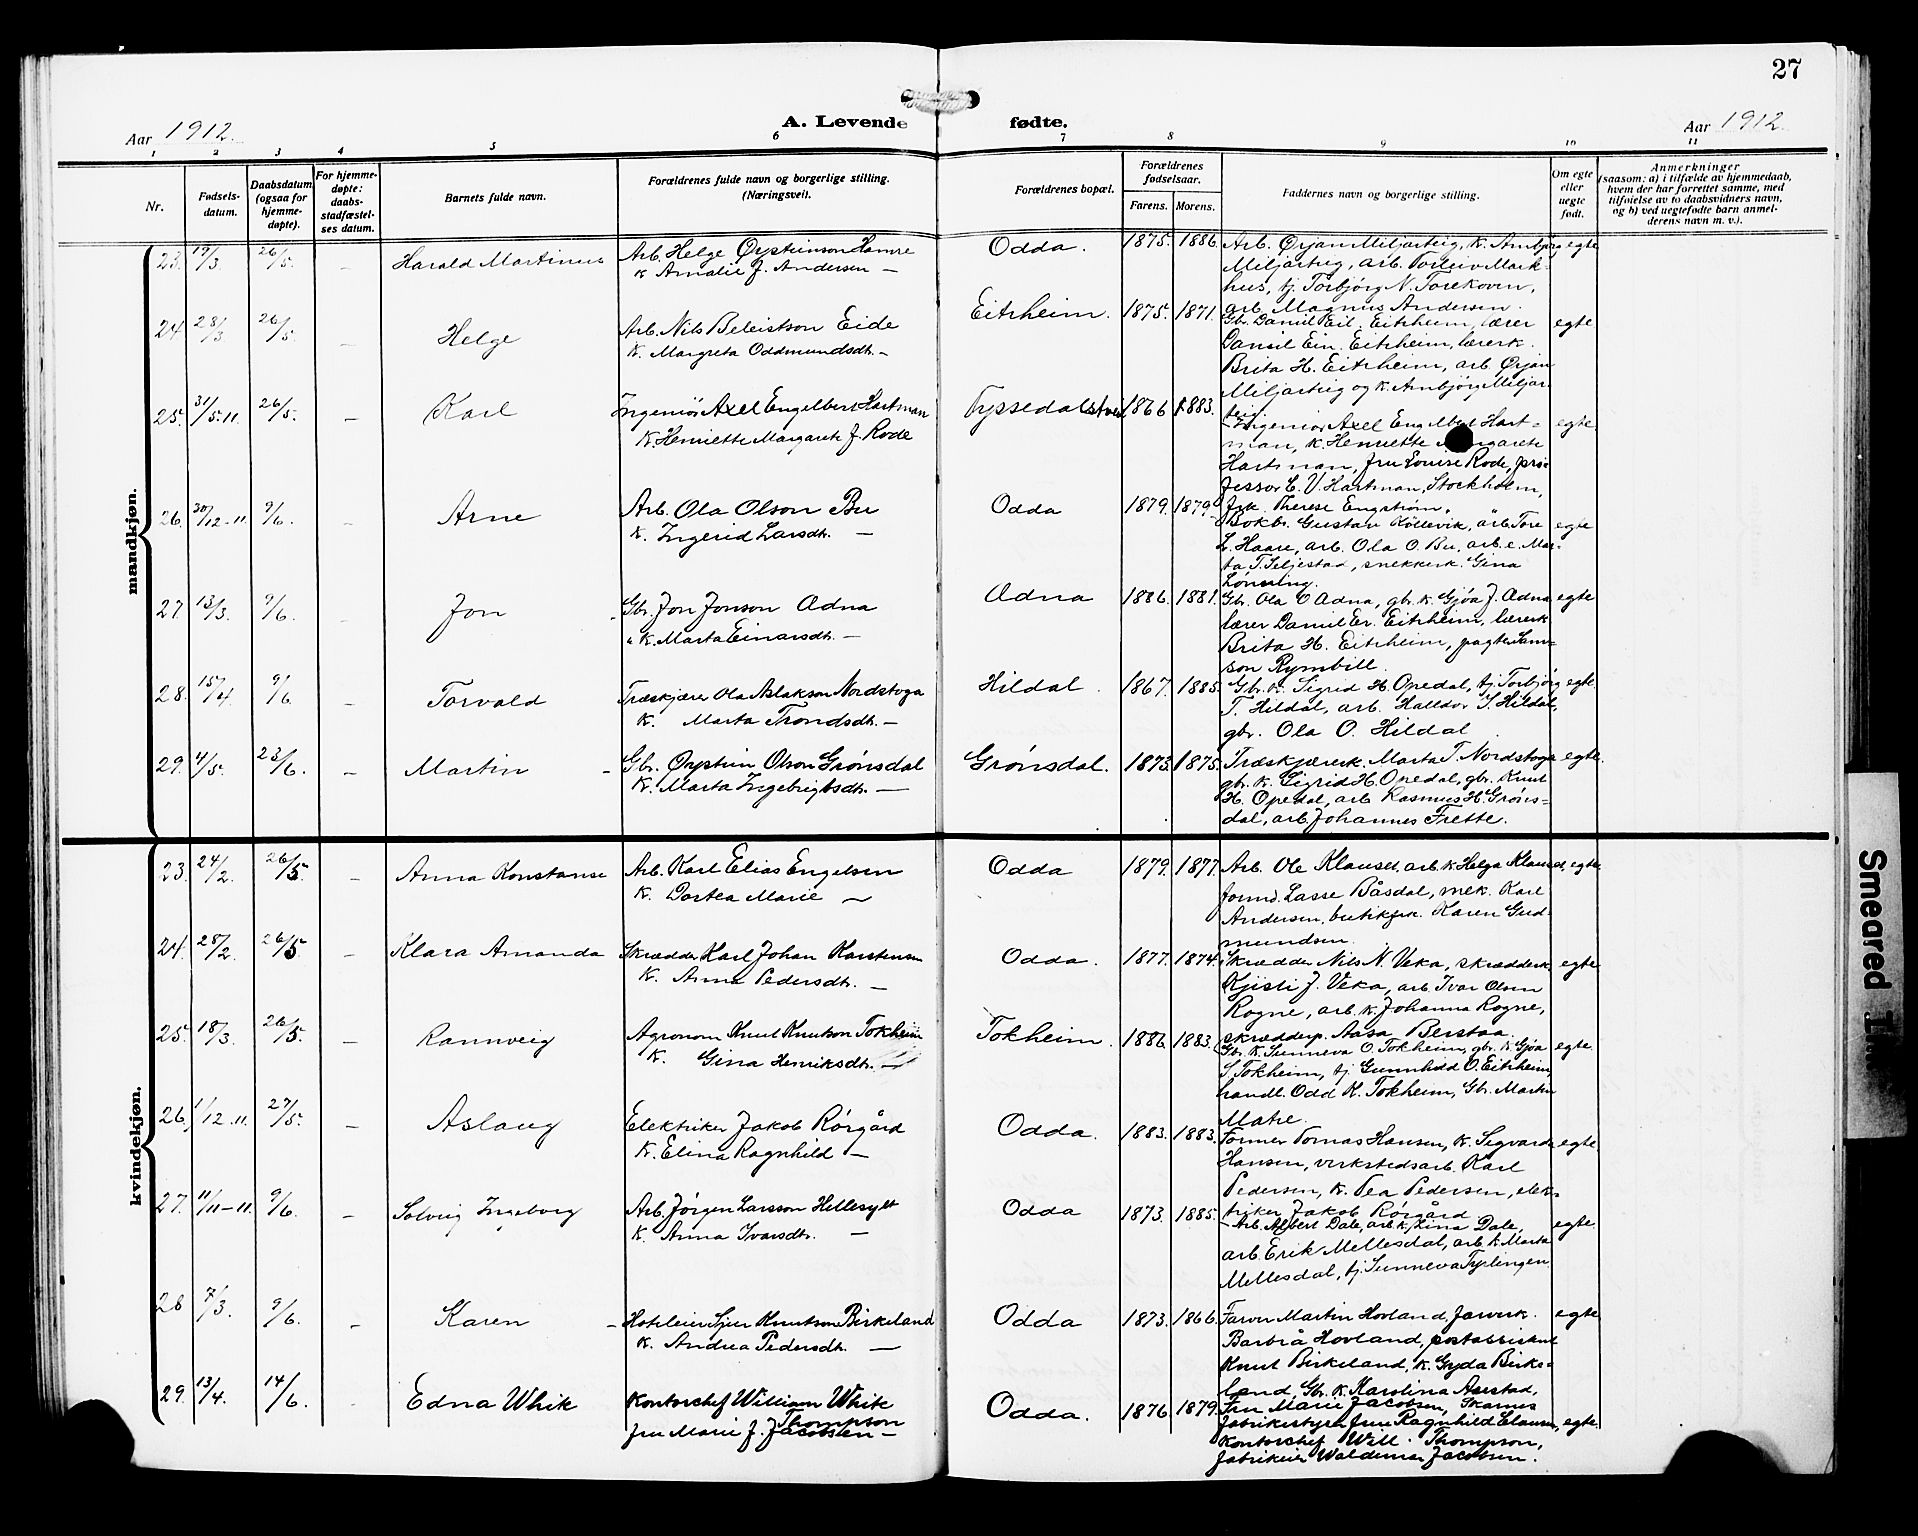 27
Aar 1912.
A. Levende fødte.
Aar 1912.
1 2 3 4 5 6 7 8 9 10 11
Nr.
Fødsels-
datum.
Daabsdatum
(ogsaa for
hjemme-
døpte).
For hjemme-
døpte:
daabs-
stadfæstel-
ses datum.
Barnets fulde navn.
Forældrenes fulde navn og borgerlige stilling.
(Næringsvei).
Forældrenes bopæl.
Forældrenes
fødselsaar.
Farens. Morens.
Faddernes navn og borgerlige stilling.
Om egte
eller
uegte
født.
Anmerkninger
(saasom: a) i tilfælde av hjemmedaab,
hvem der har forrettet samme, med
tilføielse av to daabsvidners navn,
og b) ved uegtefødte barn anmel-
derens navn m. v.).
mandkjøn.
23. 17/3 26/5. – Harald Martinus
Arb. Helge Øysteinson Hamre
K. Amalie J. Andersen –
Odda. 1875. 1886.
Arb. Ørjan Miljarteig, K. Ambjørg
Miljarteig, arb. Torleiv Mark-
hus, tj. Torbjørg N.
arb. Magnus Andersen.
egte
24. 28/3 26/5. – Helge
Arb. Nils Eide
K. Margreta Oddmundsdt. –
Eitrheim. 1875. 1871.
Gbr. Daniel Eil. Eitrheim, lærer
Daniel Ein. Eitrheim, lærerk.
Brita H. Eitrheim, arb. Ørjan
Miljarteig og K. Ambjørg Miljar-
teig.
egte
25. 31/5.11. 26/5. – Karl
Ingeniør Axel Engelbert Hartman
K. Henriette Margarete J. Rode
Tyssedal 1866 1883.
Ingeniør Axel Engelbert Hart-
man, K. Henriette Margarete
Hartman, fru Louise Rode, pro-
fessor C. V. Hartman, Stockholm,
frk. Therese Engstrøm.
egte
26. 30/12-11. 9/6. – Arne
Arb. Ola Olson Bu
K. Ingerid Larsdt. –
Odda 1879. 1879.
Bokb. Gustav Kollevik, arb. Tore
L. Haare, arb. Ola O. Bu, arb.e. Mar-
ta T. Seljestad, snekkerk. Gina
Lønning.
egte
27. 13/3. 9/6. Jon
Gbr. Jon Jonson Adna
K. Marta Einarsdt. –
Adna 1886. 1881.
Gbr. Ola O Adna, gbr. K. Gjøa J. Adna
lærer Daniel Er. Eitrheim, lærerk
Brita H. Eitrheim, pagter Sam-
son Rymbill.
egte
28. 15/4 9/6 Torvald
Træskjærer Ola Aslakson Nordstoga
K. Marta Trondsdt. –
Hildal. 1867. 1885.
Gbr. K. Sigrid H. Opedal, tj. Torbjørg
T. Hildal, arb. Halldor S. Hildal,
gbr. Ola O. Hildal.
egte.
29. 4/5. 23/6. – Martin
Gbr. Øystein Olson Grønsdal
K. Marta Ingebrigtsdt. –
Grønsdal. 1873. 1875.
Træskjærerk. Marta T. Nordstoga
gbr. K. Sigrid H. Opedal, gbr. Knut
H. Opedal, arb. Rasmus H. Grøns-
dal, arb. Johannes Frette.
egte.
kvindekjøn.
23. 24/2. 26/5. – Anna Konstanse
Arb. Karl Elias Engelsen
K. Dortea Marie –
Odda 1879. 1877.
Arb. Ole Klausen, arb. K. Helga Klausen,
formd. Lasse Båsdal, mek. Karl
Andersen, butikfrk. Karen Gud-
mundsen.
egte.
24. 28/2. 26/5. – Klara Amanda
Skrædder Karl Johan Karstensen
K. Anna Pedersdt. –
Odda. 1877. 1874.
Skrædder Nils N. Veka, skrædderk.
Kjisti J. Veka, arb. Ivar Olsen
Rogne, arb. K. Johanna Rogne,
skrædderp. Aasa Berstaa.
egte
25. 18/3. 26/5. – Rannveig
Agronom Knut Knutson Tokheim
K. Gina Henriksdt. –
Tokheim. 1886. 1883.
Gbr. K. Sunneva O. Tokheim, gbr. K. Gjøa
S. Tokheim, tj. Gunnhild O. Eitrheim,
handl. Odd K. Tokheim, Gbr. Martin
Matre.
egte.
26. 1/12-11. 27/5. – Aslaug
Elektriker Jakob Rørgård
K. Elina Ragnhild –
Odda. 1883. 1883.
Former Tomas Hansen, K. Sigvarda
Hansen, verkstedsarb. Karl
Pedersen, K. Tea Pedersen, elek-
triker Jakob Rørgård.
egte
27. 11/11-11. 9/6. – Solveig Ingeborg
Arb. Jørgen Larsson Hellesylt
K. Anna Ivarsdt. –
Odda 1873. 1885.
Arb. Albert Dale, arb. K. Lina Dale,
arb. Erik Mellesdal, arb. K. Marta
Mellesdal, tj. Sunneva
egte.
28 7/3. 9/6. – Karen
Hoteleier Sjur Knutson Birkeland
K. Andrea Pedersdt. –
Odda 1873. 1866.
Farver Martin Hovland, farverk.
Barbrå Hovland,
Knut Birkeland, K. Gyda Birke-
land, Gbr. K. Karolina Aasestad,
egte
29. 13/4. 14/6. Edna White
Kontorchef William White
Thompson
fru Marie J. Jacobsen –
Odda. 1876. 1879.
Fru Marie Jacobsen, Skarnes
fabrikestyrer fru Ragnhild Clausen,
kontorchef Will. Thompson,
fabrikeier Waldemar Jacobsen.
egte.
Smeared